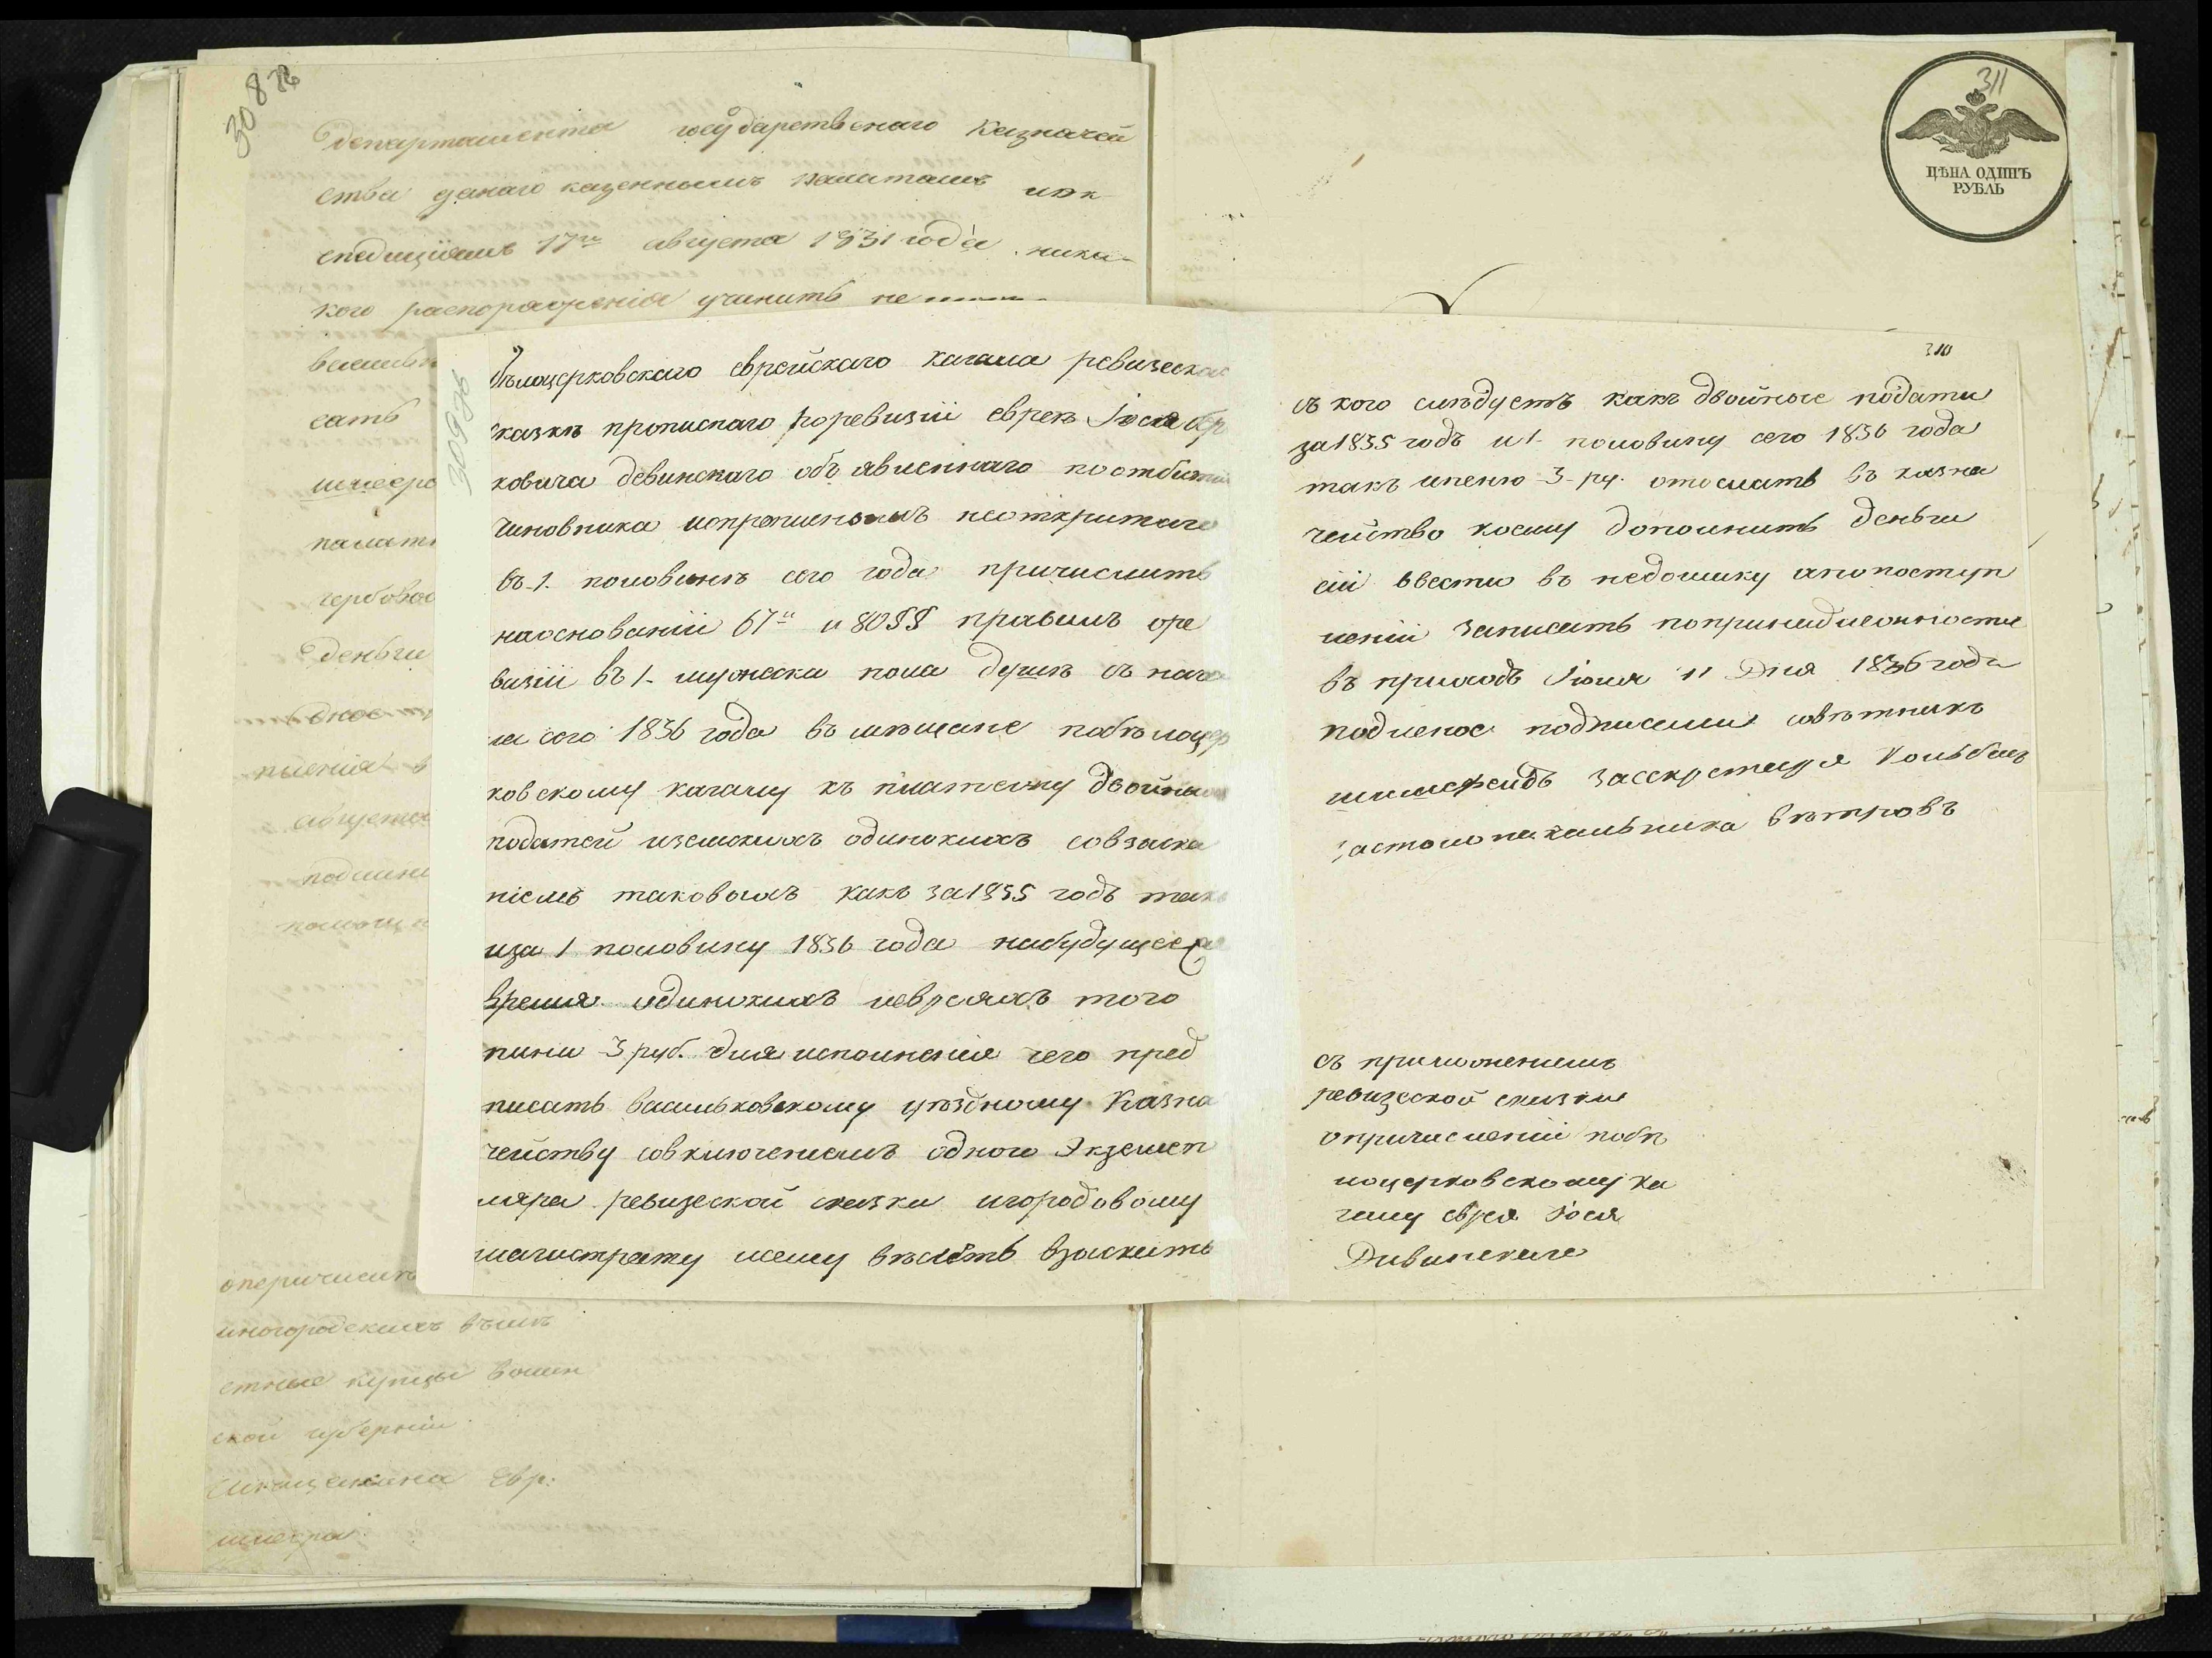 308 об
Департамента государственаго Казначей
ства данаго казеннымъ палатамъ иэк
спедицiямъ 17го августа 1831 года ника-
кого распоряженiя учинить не
сать
палат
гербовое
деньги
пленiя в
августа
подлинн
помощн
опричислен
иногородскихъ
стные купцы волын
ской губернiи
Евр:
шмеера
309 об
бѣлоцерковскаго еврейскаго кагала ревизеской
сказкѣ прописнаго поревизiи еврея Iося бер
ковича девинскаго объявленнаго поотбытiи
чиновника ипрописныхъ неоткритаго
въ 1. половинѣ сего года причислить
наоснованiи 67й и 80§§ правилъ оре
визiи въ 1. мужеска пола душѣ съ нача
ла сего 1836 года въ мѣщане побѣлоцер
ковскому кагалу къ платежу двойныхъ
податей иземскихъ одинокихъ совзыска
нiемъ таковыхъ какъ за 1835 годъ такъ
иза 1 половину 1836 года набудущее же
время одинокихъ исверхъ того
пини 3 руб. для исполненiя чего пред
писать васильковскому уѣздному Казна
чейству совключенiемъ одного Экземп
ляра ревизской сказки игородовому
магистрату коему вѣлѣть взыскить
310
съ кого слѣдуетъ какъ двойные подати
за 1835 годъ и 1. половину сего 1836 года
такъ ипеню 3- ру. отослать въ казна
чейство коему дополнить деньги
сiи ввести въ недоимку апопоступ
ленiи записать попринадлежности
въ приходъ Iюня 11 Дня 1836 года
подленое подписали совѣтникъ
засекретаря
застоло начальника вѣтровъ
съ приложенiемъ
ревизской сказки
опричисленiи побѣ
лоцерковскому ка
галу еврея Iося
Дивинскаго
311
ЦѢНА ОДИНЪ
РУБЛЬ